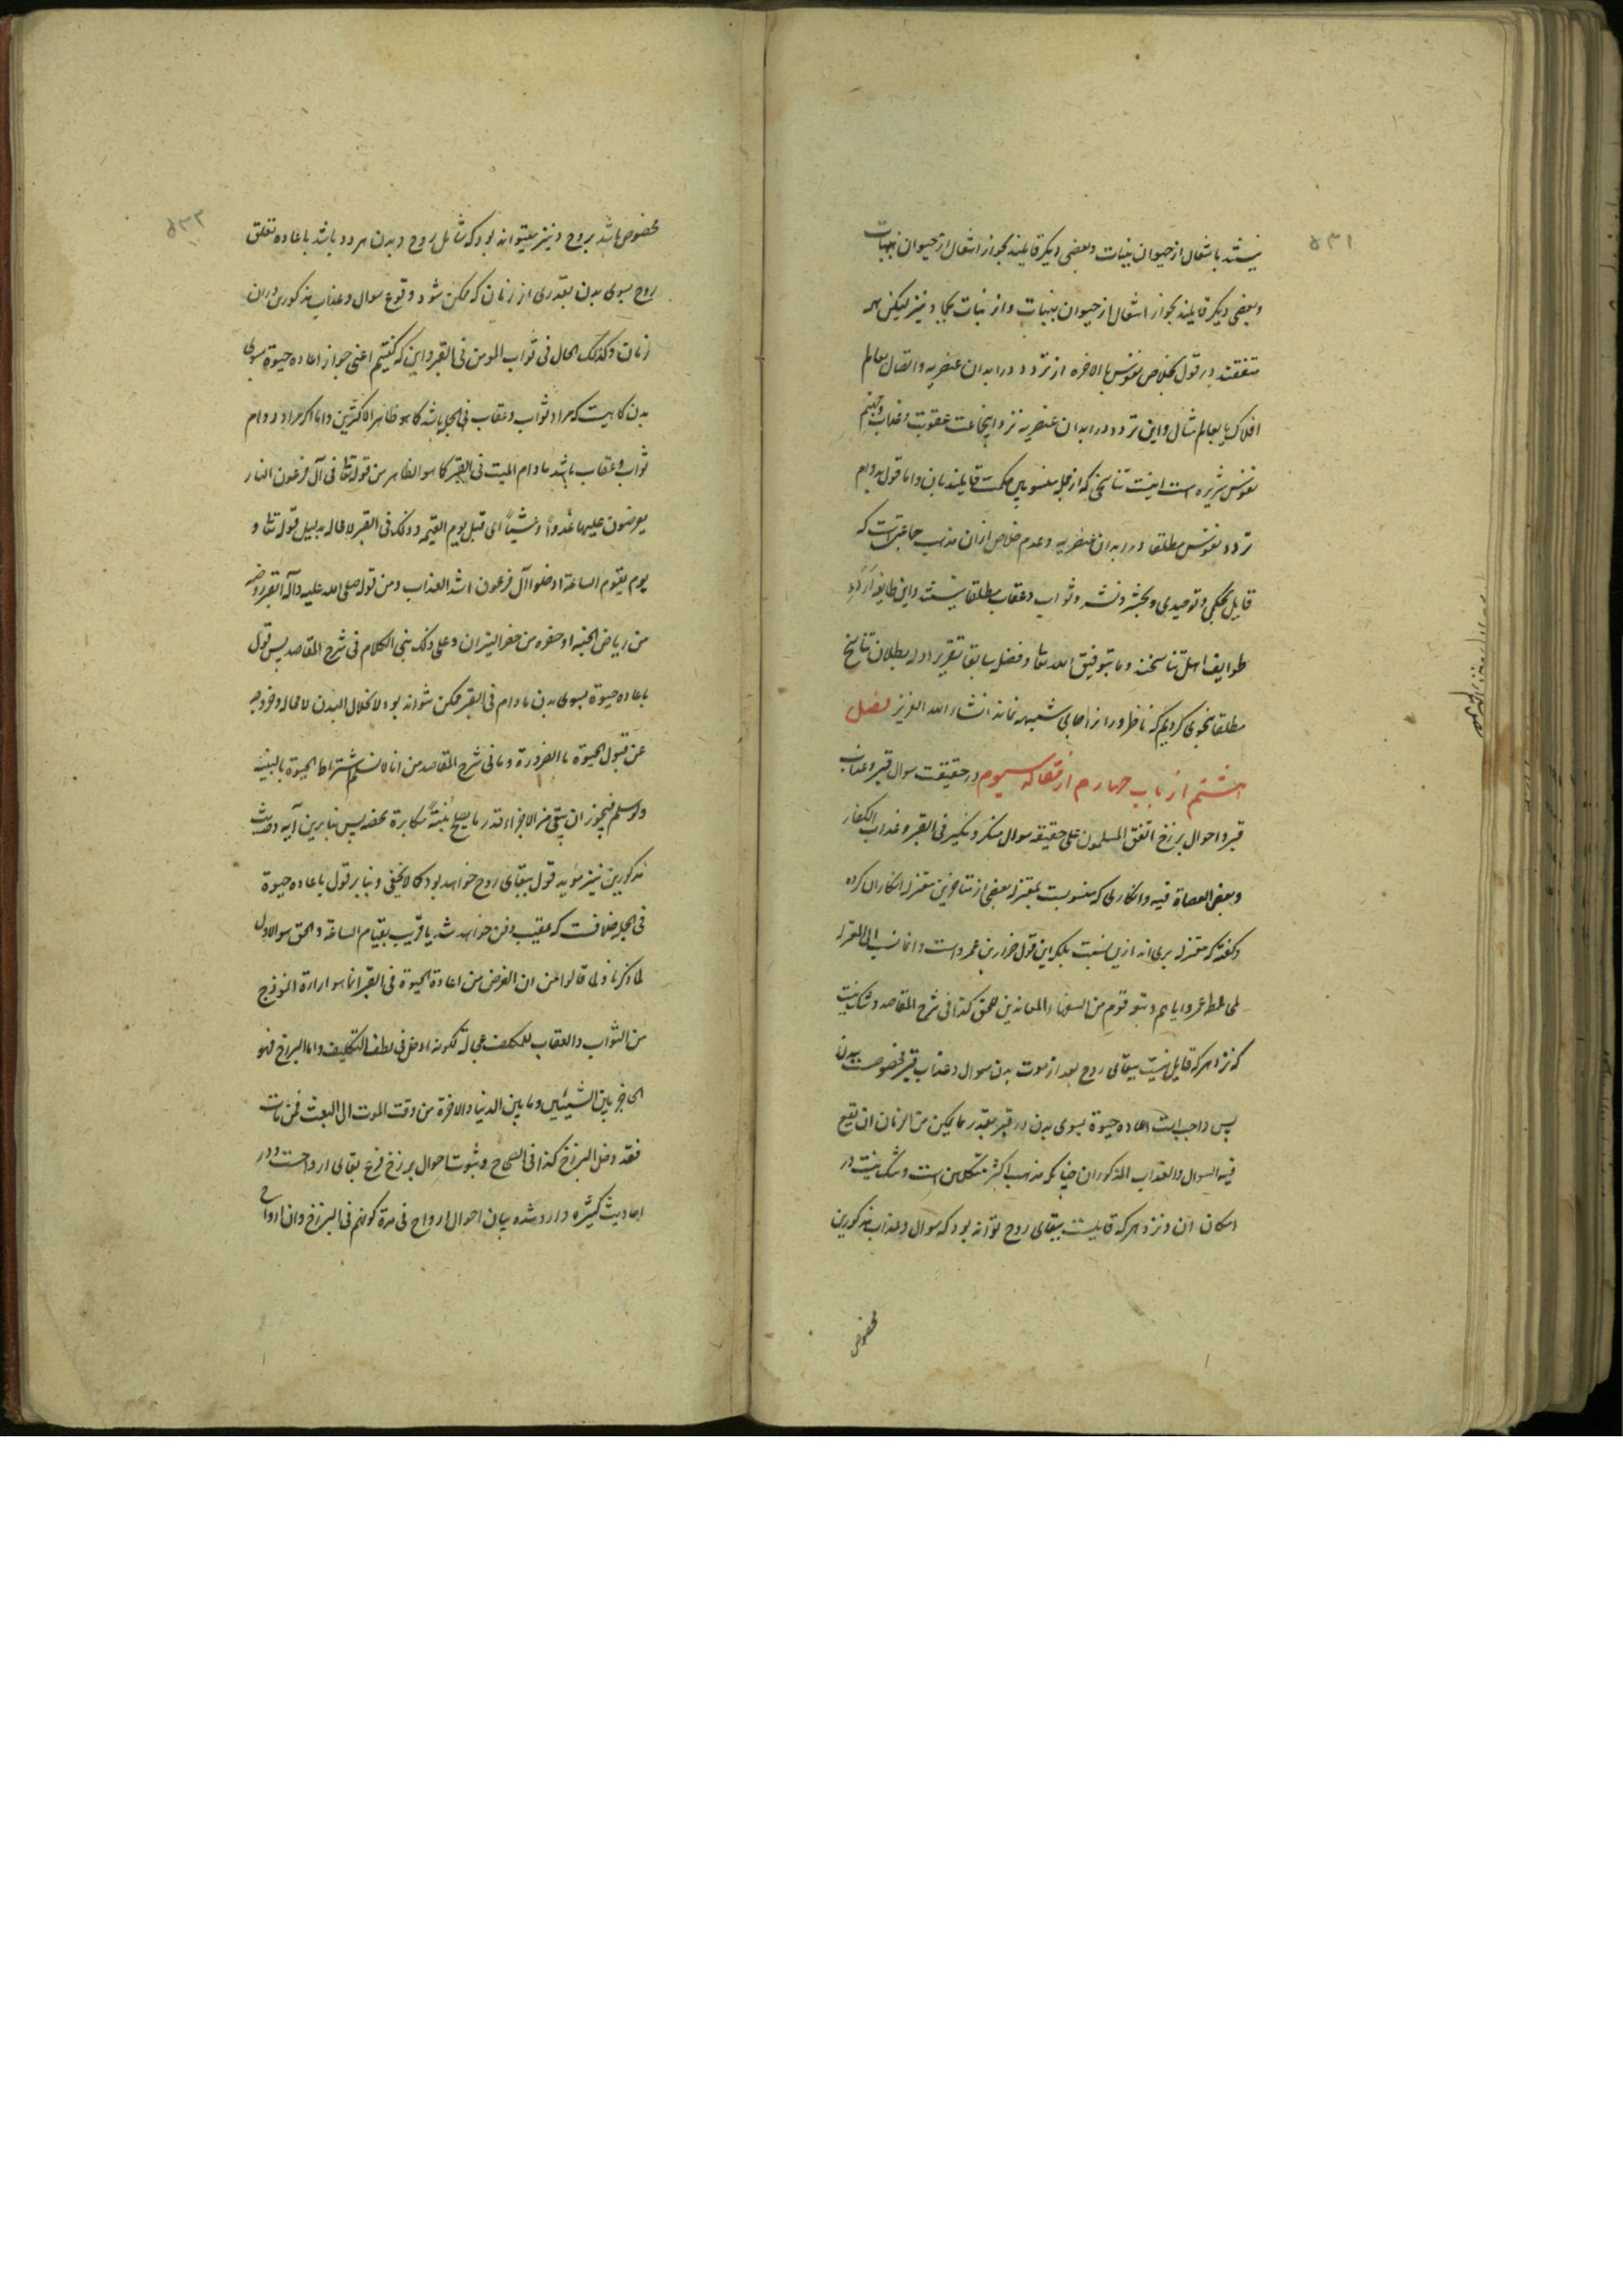 ۵۳۱
نیستند بانتقال از حیوان بنبات و بعضی دیکر قایلند بجواز انتقال از حیوان بنبات
و بعضی دیکر قایلند بجواز انتقال از حیوان بنبات و از نبات بجماد نیز لیکن همه
متفقند در قول بخلاص نفوس بالاخره از تردد در ابدان عنصریه و اتصال بعالم
افلاک یا بعالم مثال و این تردد در ابدان عنصریه نزد اینجماعت عقوبت و عذاب و جهنم
نفوس شریره است اینست تناسخی که از جمله منسوبین بحکمت قایلند بان و اما قول بدوام
تردد نفوس مطلقا در ابدان عنصریه و عدم خلاص از ان مذهب جماعتیست که
قایل بحکمی و توحیدی و بحشر و نشر و ثواب و عقاب مطلقا نیستند و این طایفه اردء
طوایف اهل تناسخند و ما بتوفیق الله تعا و فضله سابقا تقریر ادله بطلان تناسخ
مطلقا بنحوی کردیم که ناظر ورا نراحابی شبهه نماند انشاء الله العزیز فصل
هشتم از باب چهارم از مقاله سیوم در حقیقت سوال قبر و عذاب
قبر و احوال برزخ اتفق المسلمون علی حقیقه سوال منکر و نکیر فی القبر و عذاب الکفار
و بعض العصاة فیه و انکاری که منسوبست بمعتزله بعضی از متاخرین معتزله انکار ان کرده
و کفته که معتزله بری اند ازین نسبت بلکه این قول ضرار بن عمرو است و انما نسب الی المعتزله
لمخالطه ضرار ایاهم و تبعه قوم من السفهاء المعاندین للحق کذا فی شرح المقاصد و شک نیست
که نزد هرکه قایل نیست ببقای روح بعد از موت بدن سوال و عذاب قبر مخصوصست ببدن
پس واجبست اعاده حیوة بسوی بدن در قبر بقدر ما یمکن من الزمان ان یقع
فیه السوال و العذاب المذکوران چنانکه مذهب اکثر متکلمین است و شک نیست در
امکان ان و نزد هرکه قایلست ببقای روح تواند بود که سوال و عذاب مذکورین
مخصوص
۵۳۲
مخصوص باشد بروح و نیز میتواند بود که شامل روح و بدن هر دو باشد باعاده تعلق
روح بسوی بدن بقدری از زمان که ممکن شود وقوع سوال و عذاب مذکورین در ان
زمان و کذلک الحال فی ثواب المومن فی القبر و این که کفتیم اعنی جواز اعاده حیوة بسوی
بدن کاهیست که مراد ثواب و عقاب فی الجمله باشد کما هو ظاهر الاکثرین و اما اکر مراد دوام
ثواب و عقاب باشد مادام المیت فی القبر کما هو الظاهر من قوله تعا فی آل فرعون النار
یعرضون علیها غدواً و عشیاً ای قبل یوم القیمه و ذلک فی القبر لا محاله بدلیل قوله تعا و
یوم یقوم الساعة ادخلوا آل فرعون اشد العذاب و من قوله صلی الله علیه و اله القبر روضه
من ریاض الجنه او حفره من حفر النیران و علی ذلک بنی الکلام فی شرح المقاصد پس قول
باعاده حیوة بسوی بدن مادام فی القبر ممکن نتواند بود لانحلال البدن لا محاله و خروجه
عن قبول الحیوة بالضرورة و ما فی شرح المقاصد من انا لا نسلم اشتراط الحیوة بالبنیه
ولو سلم فیجوز ان یبقی من الاجزاء قدر ما یصلح بنیةً مکابرة محضه پس بنابرین آیه و حدیث
مذکورین نیز موید قول ببقای روح خواهد بود کما لا یخفی و بنا بر قول باعاده حیوة
فی الجمله خلافست که عقیب دفن خواهد شد یا قریب بقیام الساعة و الحق هو الاول
لما ذکرنا و لما قالوا من ان الغرض من اعادة الحیوة فی القبر انما هو ارادة انموذج
من الثواب و العقاب للمکلف عجالة لکونه ادخل فی لطف التکلیف و اما البرزخ فهو
الحاجز بین الشیئین و ما بین الدنیا و الاخرة من وقت الموت الی البعث فمن مات
فقد دخل البرزخ کذا فی الصحاح و ثبوت احوال برزخ فرع بقای ارواحست و در
احادیث کثیره وارد شده بیان احوال ارواح فی مدة کونهم فی البرزخ و ان ارواح